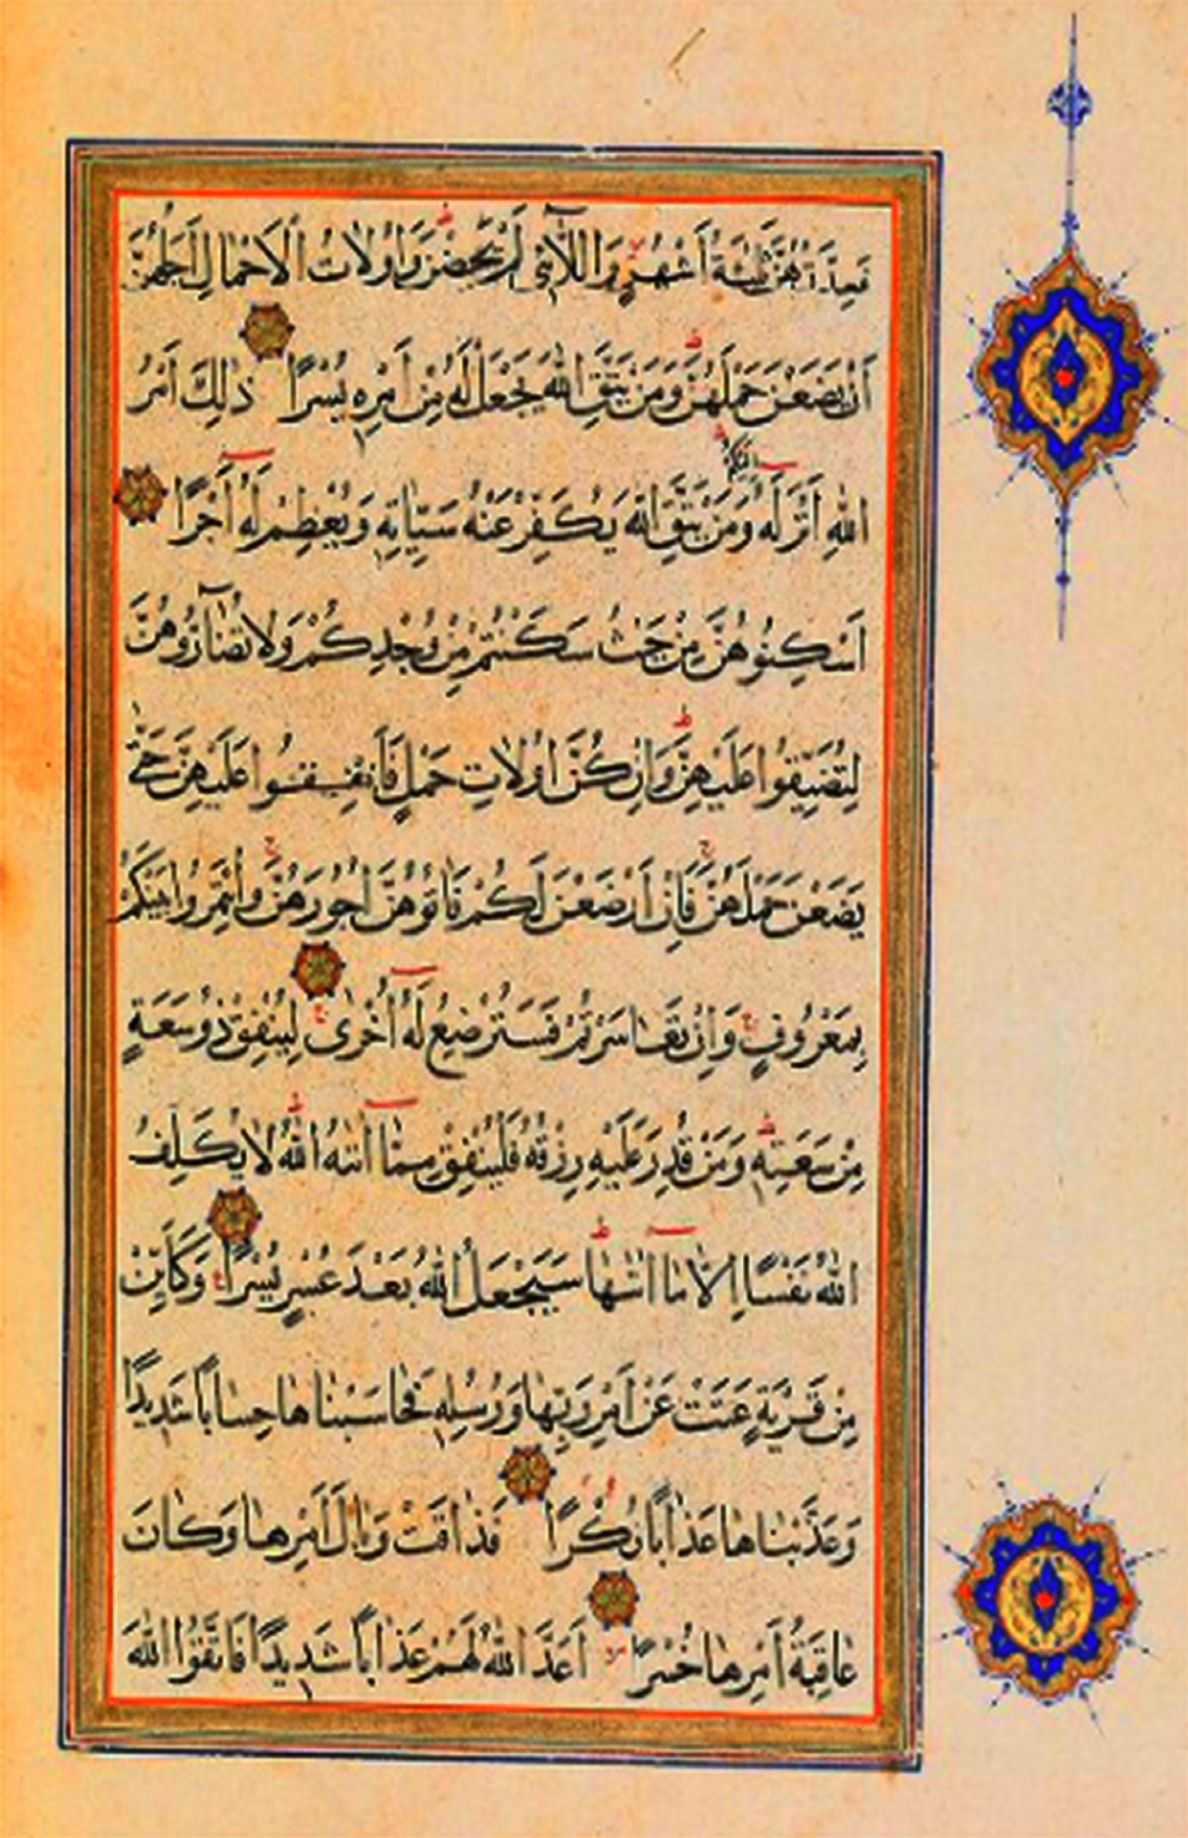 فَعِدَّتُهُنَّ ثَلٰثَةُ أَشْهُرٍ وَاللَّآئِي لَمْ يَحِضْنَ وَاُولَاتُ الْاَحْمَالِ اَجَلُهُنَّ
اَنْ يَضَعْنَ حَمْلَهُنَّ وَمَنْ يَتَّقِ اللّٰهَ يَجْعَلْ لَهُ مِنْ اَمْرِهِ يُسْرًا ذٰلِكَ اَمْرُ
اللّٰهِ اَنْزَلَهُ اِلَيْكُمْ وَمَنْ يَتَّقِ اللّٰهَ يُكَفِّرْ عَنْهُ سَيِّاٰتِهِ وَيُعْظِمْ لَهُ اَجْرًا
اَسْكِنُوهُنَّ مِنْ حَيْثُ سَكَنْتُمْ مِنْ وُجْدِكُمْ وَلَا تُضَآرُّوهُنَّ
لِتُضَيِّقُوا عَلَيْهِنَّ وَاِنْ كُنَّ اُولَاتِ حَمْلٍ فَاَنْفِقُوا عَلَيْهِنَّ حَتّٰى
يَضَعْنَ حَمْلَهُنَّ فَاِنْ اَرْضَعْنَ لَكُمْ فَاٰتُوهُنَّ اُجُورَهُنَّ وَأْتَمِرُوا بَيْنَكُمْ
بِمَعْرُوفٍ وَاِنْ تَعَاسَرْتُمْ فَسَتُرْضِعُ لَهُ اُخْرٰى لِيُنْفِقْ ذُو سَعَةٍ
مِنْ سَعَتِهِ وَمَنْ قُدِرَ عَلَيْهِ رِزْقُهُ فَلْيُنْفِقْ مِمَّا اٰتٰىهُ اللّٰهُ لَا يُكَلِّفُ
اللّٰهُ نَفْسًا اِلَّا مَا اٰتٰىهَا سَيَجْعَلُ اللّٰهُ بَعْدَ عُسْرٍ يُسْرًا وَكَاَيِّنْ
مِنْ قَرْيَةٍ عَتَتْ عَنْ اَمْرِ رَبِّهَا وَرُسُلِهِ فَحَاسَبْنَاهَا حِسَابًا شَدِيدًا
وَعَذَّبْنَاهَا عَذَابًا نُكْرًا فَذَاقَتْ وَبَالَ اَمْرِهَا وَكَانَ
عَاقِبَةُ اَمْرِهَا خُسْرًا اَعَدَّ اللّٰهُ لَهُمْ عَذَابًا شَدِيدًا فَاتَّقُوا اللّٰهَ